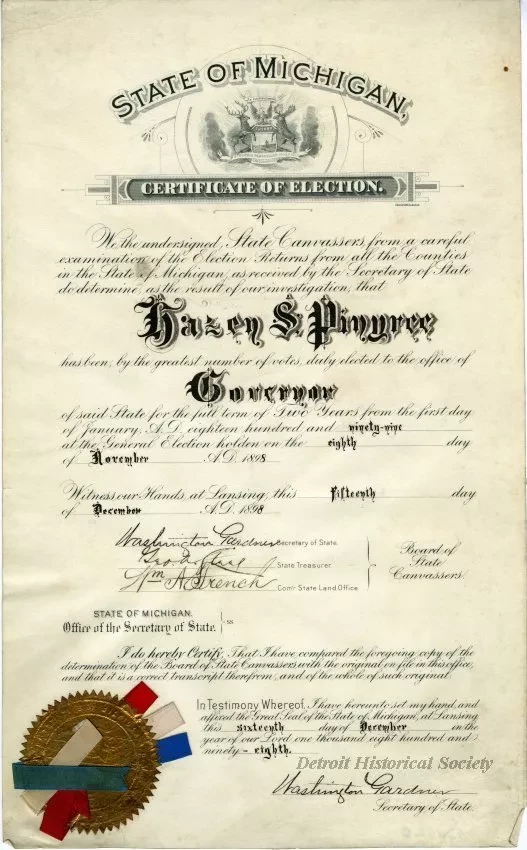 STATE OF MICHIGAN,
CERTIFICATE OF ELECTION.
We the undersigned, State Canvassers, from a careful
examination of the Election Returns from all the Counties
in the State of Michigan, as received by the Secretary of State
do determine, as the result of our investigation, that
Hazen S. Pingree
has been, by the greatest number of votes, duly elected to the office of
Governor
of said State for the full term of Two Years from the first day
of January, A.D. eighteen hundred and ninety-nine
at the General Election holden on the eighth day
of November A.D. 1898
Witness our Hands, at Lansing, this fifteenth day
of December A.D. 1898
Washington Gardner Secretary of State.
State Treasurer
Wm A. French Com'r State Land Office
Board of
State
Canvassers.
STATE OF MICHIGAN,
Office of the Secretary of State. ss.
I do hereby Certify, That I have compared the foregoing copy of the
determination of the Board of State Canvassers with the original on file in this office,
and that it is a correct transcript therefrom, and of the whole of such original.
In Testimony Whereof, I have hereunto set my hand, and
affixed the Great Seal of the State of Michigan, at Lansing
this sixteenth day of December in the
year of our Lord one thousand eight hundred and
ninety-eighth.
Detroit Historical Society
Washington Gardner
Secretary of State.